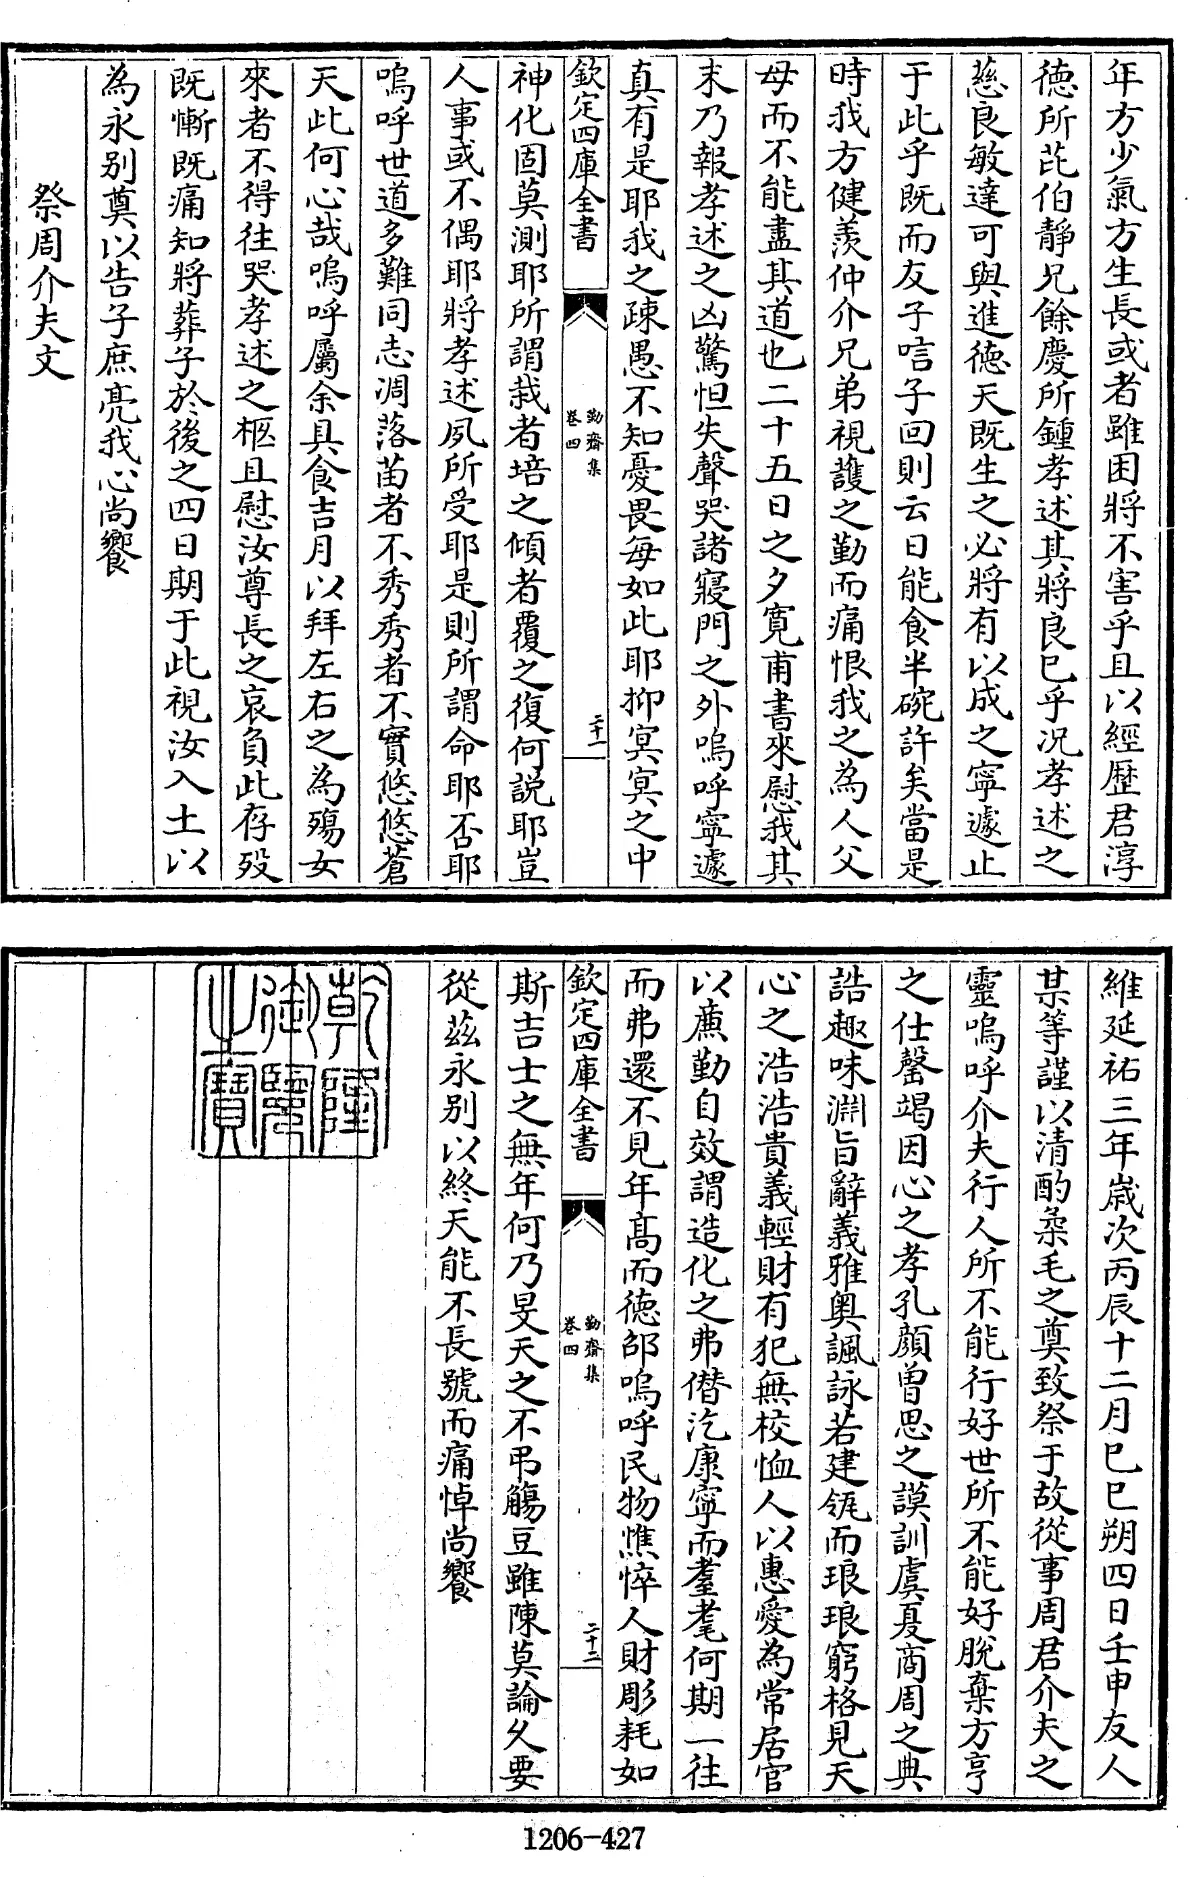 年方少氣方生長或者雖困將不害乎且以經歷君淳
德所芘伯靜兄餘慶所鍾孝述其將良已乎况孝述之
慈良敏達可與進德天既生之必將有以成之寧遽止
于此乎既而友子唁子回則云日能食半碗許矣當是
時我方健羨仲介兄弟視護之勤而痛恨我之為人父
母而不能盡其道也二十五日之夕寛甫書來慰我其
末乃報孝述之凶驚怛失聲哭諸寢門之外嗚呼寧遽
真有是耶我之疎愚不知憂畏每如此耶抑冥冥之中
欽定四庫全書
勤齋集
卷四
二十一
神化固莫測耶所謂栽者培之傾者覆之復何説耶豈
人事或不偶耶將孝述夙所受耶是則所謂命耶否耶
嗚呼世道多難同志凋落苗者不秀秀者不實悠悠蒼
天此何心哉嗚呼屬余具食吉月以拜左右之為殤女
來者不得往哭孝述之柩且慰汝尊長之哀負此存殁
既慚既痛知將葬子於後之四日期于此視汝入土以
為永别奠以告子庶亮我心尚饗
祭周介夫文
維延祐三年歲次丙辰十二月己巳朔四日壬申友人
某等謹以清酌柔毛之奠致祭于故從事周君介夫之
靈嗚呼介夫行人所不能行好世所不能好脫棄方亨
之仕罄竭因心之孝孔顔曽思之謨訓虞夏商周之典
誥趣味淵旨辭義雅奥諷詠若建瓴而琅琅窮格見天
心之浩浩貴義輕財有犯無校恤人以惠愛為常居官
以廉勤自效謂造化之弗僭汔康寧而耋耄何期一往
而弗還不見年髙而德邵嗚呼民物憔悴人財彫耗如
欽定四庫全書
勤齋集
卷四
二十二
斯吉士之無年何乃旻天之不弔觴豆雖陳莫論久要
從兹永别以終天能不長號而痛悼尚饗
乾隆
御覽
之寶
1206-427